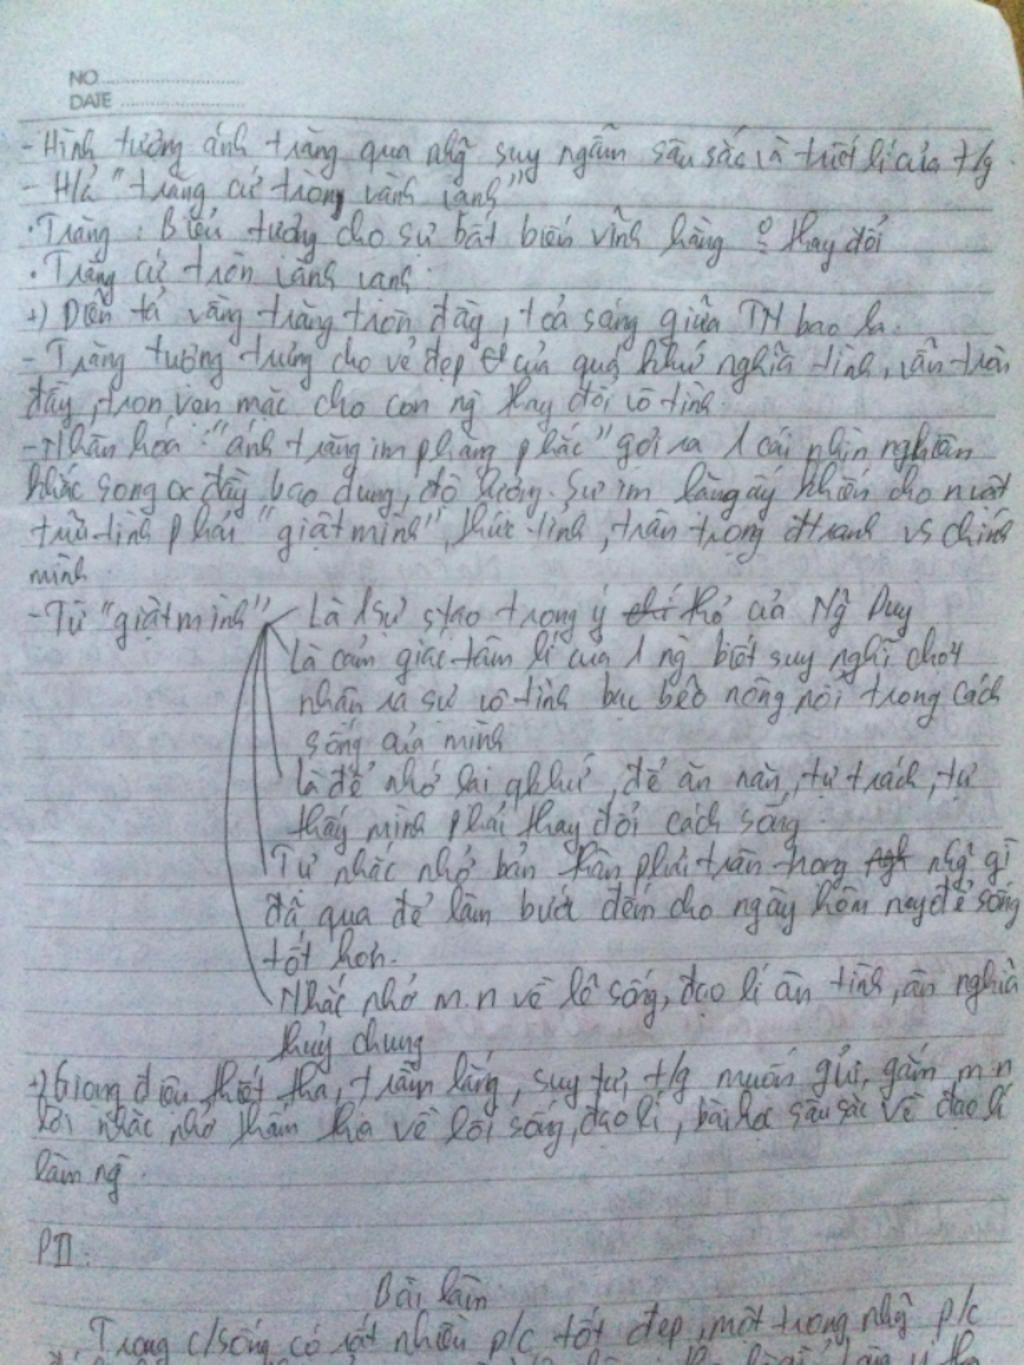 NO
DATE
- Hình tượng ánh trăng qua nhg̃ suy ngẫm sâu sắc và triết lí của t/g.
- H/ả "trăng cứ tròn vành vạnh"
· Trăng: Biểu tượng cho sự bất biến vĩnh hằng o thay đổi
· Trăng cứ tròn vành vạnh:
+) Diễn tả vầng trăng tròn đầy, toả sáng giữa TN bao la.
- Trăng tượng trưng cho vẻ đẹp của quá khứ nghĩa tình, vẫn tràn
đầy, trọn vẹn mặc cho con ng thay đổi vô tình.
- Nhân hoá: "ánh trăng im phăng phắc" gợi ra 1 cái nhìn nghiêm
khắc song đầy bao dung, độ lượng. Sự im lặng ấy khiến cho nvật
trữ tình phải "giật mình", thức tỉnh, trân trọng đtranh vs chính
mình
- Từ "giật mình" Là 1 sự stạo trong ý thơ của Ng̃ Duy
Là cảm giác tâm lí của 1 ng biết suy nghĩ chợt
nhận ra sự vô tình bạc bẽo nông nổi trong cách
sống của mình
là để nhớ lại qkhứ, để ăn năn, tự trách, tự
thấy mình phải thay đổi cách sống
Tự nhắc nhở bản thân phải trân trọng nhg̃ gì
đã qua để làm bước đệm cho ngày hôm nay để sống
tốt hơn.
Nhắc nhở m.n về lẽ sống, đạo lí ân tình, ân nghĩa
thuỷ chung
+) Giọng điệu thiết tha, trầm lắng, suy tư, t/g muốn gửi gắm m.n
lời nhắc nhở thấm thía về lối sống, đạo lí, bài học sâu sắc về đạo lí
làm ng.
PII:
Bài làm
Trong c/sống có rất nhiều p/c tốt đẹp, một trong nhg̃ p/c